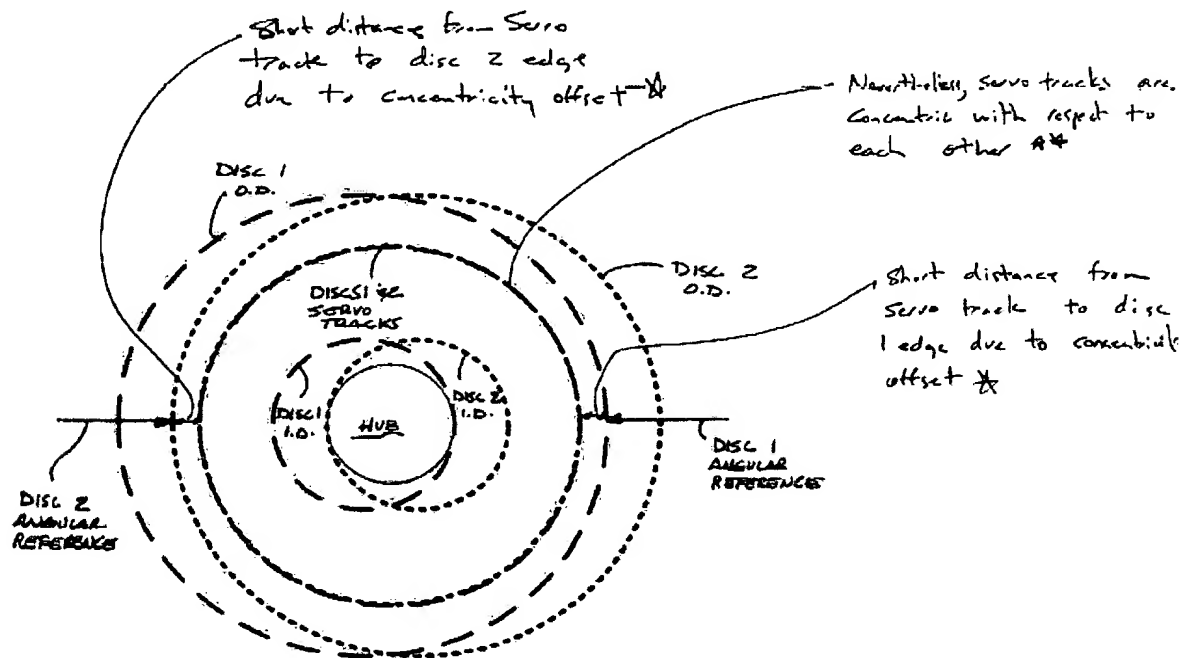 Short distance from Servo
track to disc 2 edge
due to concentricity offset
Nevertheless, servo tracks are
concentric with respect to
each other
DISC 1
O.D.
DISC 2
O.D.
DISCS 1 & 2
SERVO
TRACKS
Short distance from
servo track to disc
1 edge due to
offset
DISC 1
I.D.
HUB
DISC 2
I.D.
DISC 1
ANGULAR
REFERENCE
DISC 2
ANGULAR
REFERENCE